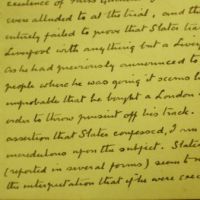 existence of
were alluded to at the trial, and the
entirely failed to prove that Slater tra
Liverpool with anything but a Liver
As he had previously announced to
people where he was going it seems to
improbable that he bought a London
order to throw pursuit off his track.
assertion that Slater confessed, I am
incredulous upon the subject. Slate
(reported in several forms) seem to
the interpretation that if he were exec